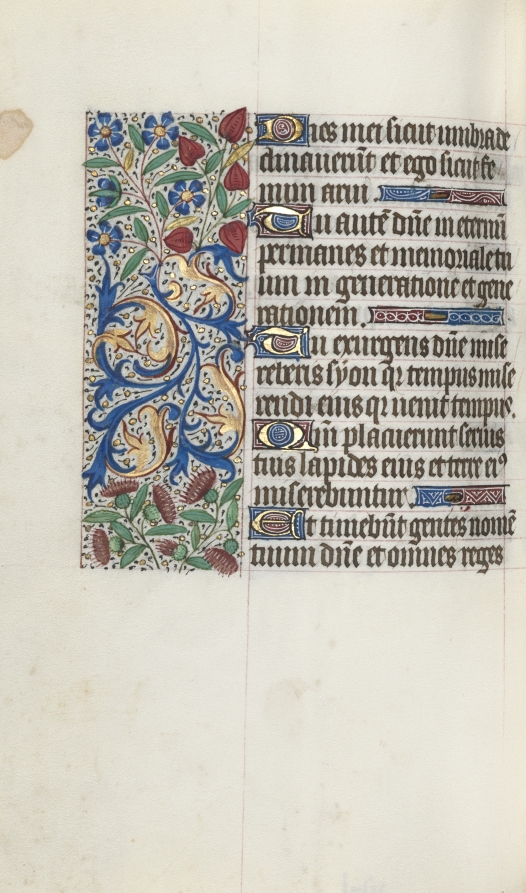 Dies mei sicut umbra de
clinauerūt et ego sicut fe
num arui .
Tu autē dñe in eternū
permanes et memoriale tu
um in generatione et gene
rationem .
Tu exurgens dñe mise
reberis syon qr tempus mise
rendi eius qr uenit tempus.
Qm̄ placuerunt seruis
tuis lapides eius et terre ei⁹
miserebuntur .
Et timebūt gentes nomē
tuum dñe et omnes reges